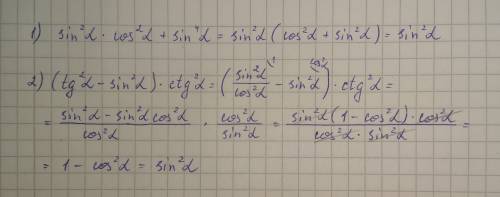 1) sin²α · cos²α + sin⁴α = sin²α (cos²α + sin²α) = sin²α
2) (tg²α − sin²α) · ctg²α = (sin²α/cos²α \1 − sin²α \cos²α) · ctg²α =
= (sin²α − sin²α cos²α)/cos²α · cos²α/sin²α = (sin²α (1 − cos²α) · cos²α)/(cos²α · sin²α) =
= 1 − cos²α = sin²α